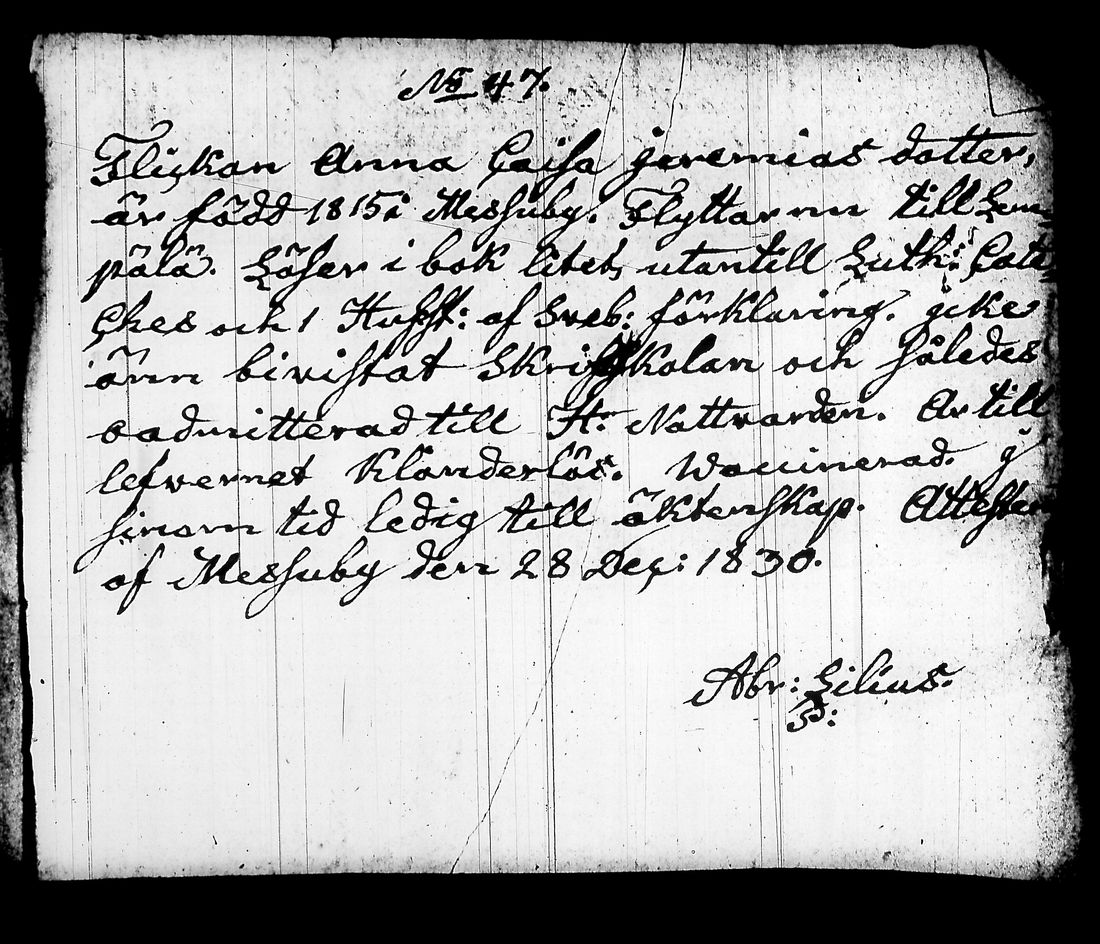 No 47.
Flickan Anna Cajsa Jeremias dotter,
är född 1815 i Messuby. Flyttar nu till Lem-
pälä. Läser i bok litet, utantill Luth: Cate-
ches och 1 Hufst: af Sveb: förklaring. icke
änn bivistat Skriftskolan och således
oadmitterad till H. Nattvarden. Ar till
lefvernet Klanderlös. Waccinerad. I
sinom tid ledig till äktenskap. Attester
af Messuby den 28 Dec: 1830.
Abr: Lilius.
P: